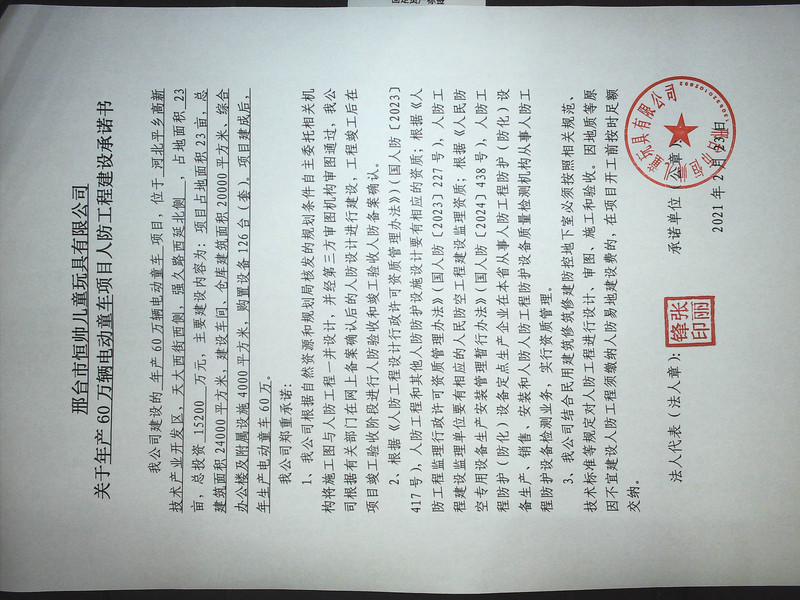 邢台市恒帅儿童玩具有限公司
关于年产60万辆电动童车项目人防工程建设承诺书
我公司建设的 年产60万辆电动童车 项目，位于 河北平乡高新
技术产业开发区，天大西街西侧，强久路西延北侧 ，占地面积 23
亩，总投资 15200 万元，主要建设内容为： 项目占地面积23亩，总
建筑面积24000平方米，建设车间、仓库建筑面积20000平方米、综合
办公楼及附属设施4000平方米，购置设备126台（套）。项目建成后，
年生产电动童车60万。
我公司郑重承诺：
1、我公司根据自然资源和规划局核发的规划条件自主委托相关机
构将施工图与人防工程一并设计，并经第三方审图机构审图通过，我公
司根据有关部门在网上备案确认后的人防设计进行建设，工程竣工后在
项目竣工验收阶段进行人防验收和竣工验收人防备案确认。
2、根据《人防工程设计行政许可资质管理办法》（国人防〔2023〕
417号），人防工程和其他人防防护设施设计要有相应的资质；根据《人
防工程监理行政许可资质管理办法》（国人防〔2023〕227号），人防工
程建设监理单位要有相应的人民防空工程建设监理资质；根据《人民防
空专用设备生产安装管理暂行办法》（国人防〔2024〕438号），人防工
程防护（防化）设备定点生产企业在本省从事人防工程防护（防化）设
备生产、销售、安装和人防工程防护设备质量检测机构从事人防工
程防护设备检测业务，实行资质管理。
3、我公司结合民用建筑修筑修建防控地下室必须按照相关规范、
技术标准等规定对人防工程进行设计、审图、施工和验收。因地质等原
因不宜建设人防工程须缴纳人防易地建设费的，在项目开工前按时足额
交纳。
法人代表（法人章）：
张丽锋印
承诺单位（公章）：
2021年2月23日